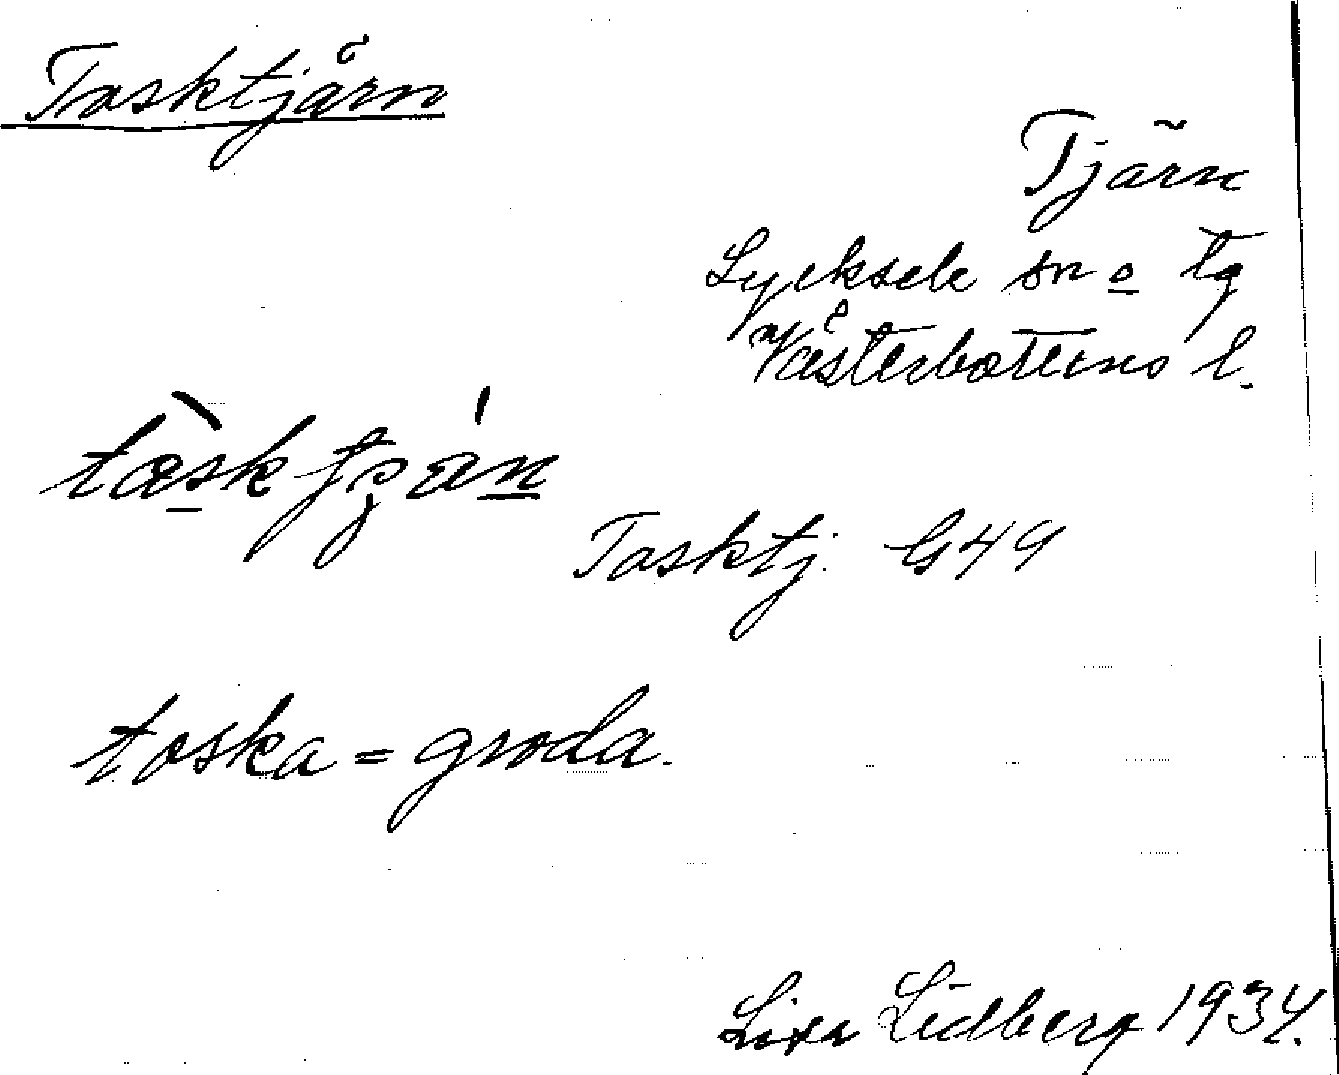 Tosktjärn
Tjärn
Lycksele sn o tg
Västerbottens l.
Tosktj. G49
toska = groda.
Lisa Lidberg 1934.